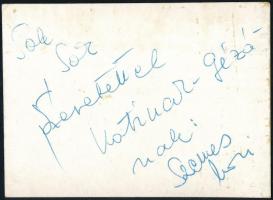 Sok Sok
szeretettel
Katinak - Gézá-
nak:
Szemes
Mari